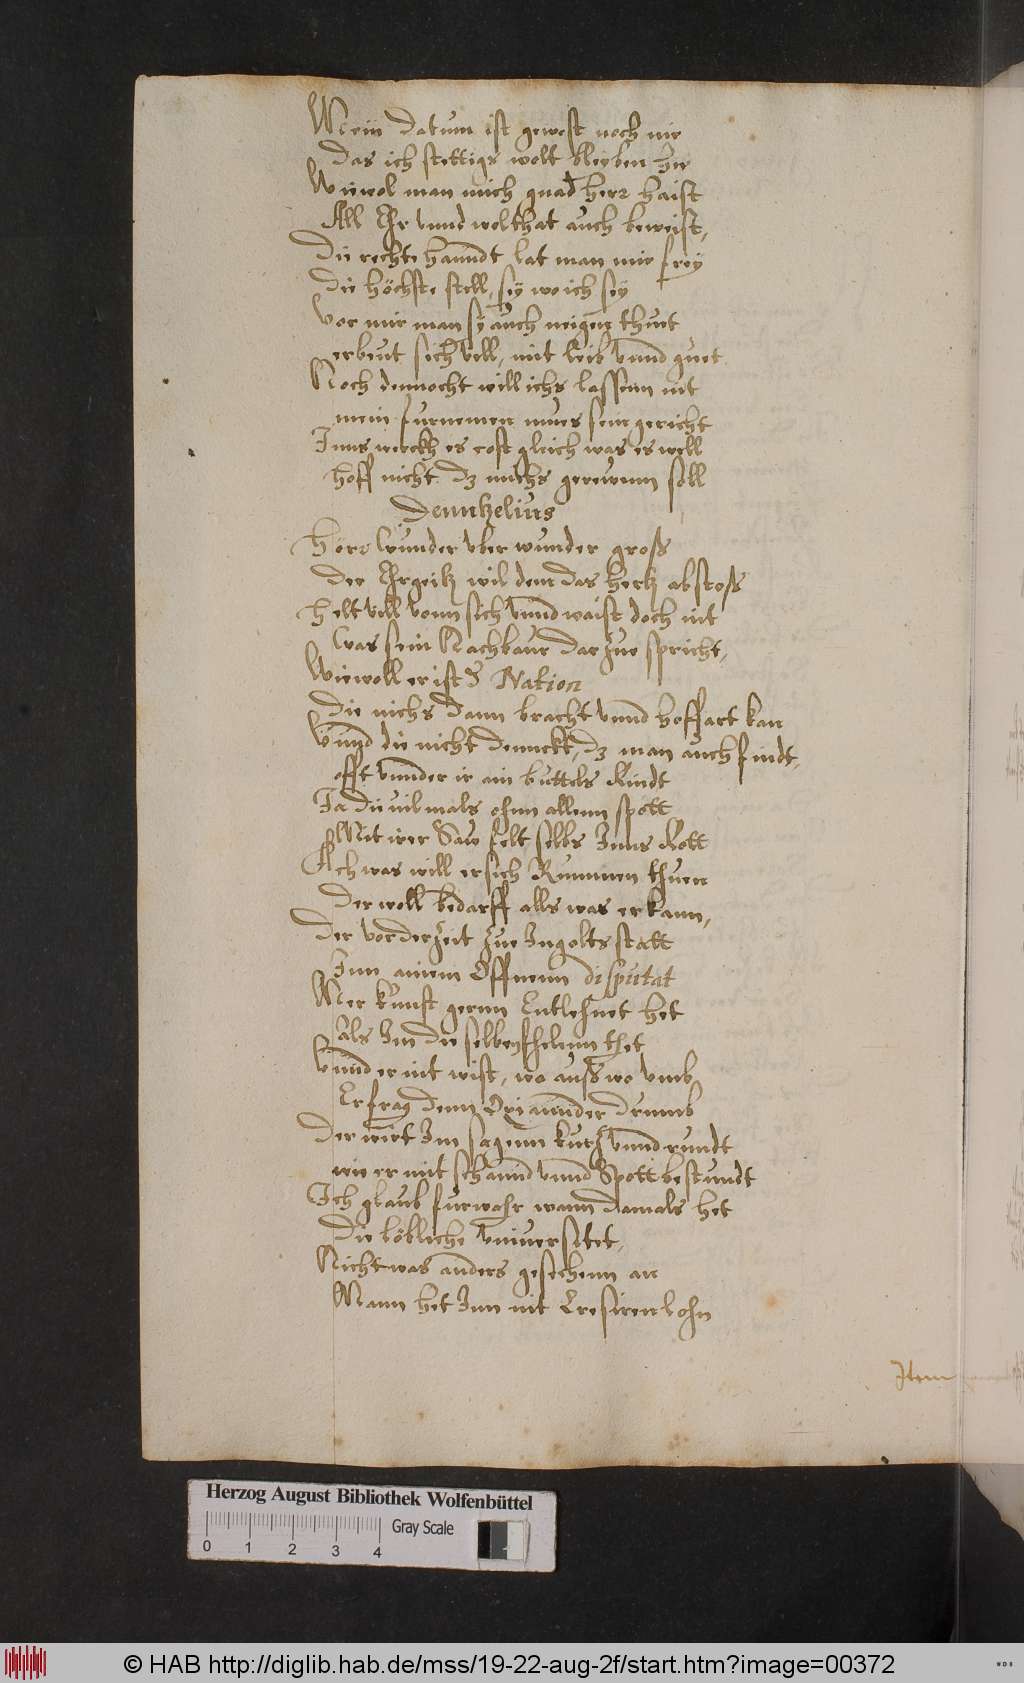 Mein datum ist gewest noch nie
Das ich stettigs wolt bleyben hie
Wiewol man mich gnad herr haist
All Ehr vnnd wolthat auch beweist,
Die rechte hanndt lat man mir frey
die höchste stell, sey wo ich sey
Vor mir man sy auch neigen thuet
erbeut sich vill, mit leib vnnd guet
Noch dennocht will ichs lassenn nit
mein furnemen mues sein gericht
Inns werckh es cost gleich was es well
hoff nicht dz michs gerewenn soll
Dennkelius
Hört Wunder vber wunder gross
Der Ehrgeitz wil dem das hertz abstoss
helt vill vonn sich vnnd waist doch nit
Was sein Nachbaur darzue spricht,
Wiewoll er ist d Nation
die nichs dann bracht vnnd hoffart kan
Vnnd die nicht dennckt, dz man auch findt,
offt vnnder ir ain buttels Kindt
Ja die vilmals ohnn allenn spott
Mit irer Saw felt selbs Inns Kott
Ach was will er sich Rummen thuen
Der woll bedarff alls was er kann,
Der vor der Zeit zue Ingoltstatt
Inn ainem Offnenn disputat
Mer kunst gernn Entlehnet het
Als Im die selben fhelenn thet
Vnnd er nit wist, wo auss wo vmb
Erfrag denn Oxiannder drumb
Der wirt Im sagenn kurtz vnnd rundt
wie er mit schannd vnnd Spott bestundt
Ich glaub furwahr wann damals het
die löbliche vniuersitet,
Nicht was anders gesechenn an
Mann het Inn nit Cresiren lohn
Item
Herzog August Bibliothek Wolfenbüttel
Gray Scale
0 1 2 3 4
© HAB http://diglib.hab.de/mss/19-22-aug-2f/start.htm?image=00372